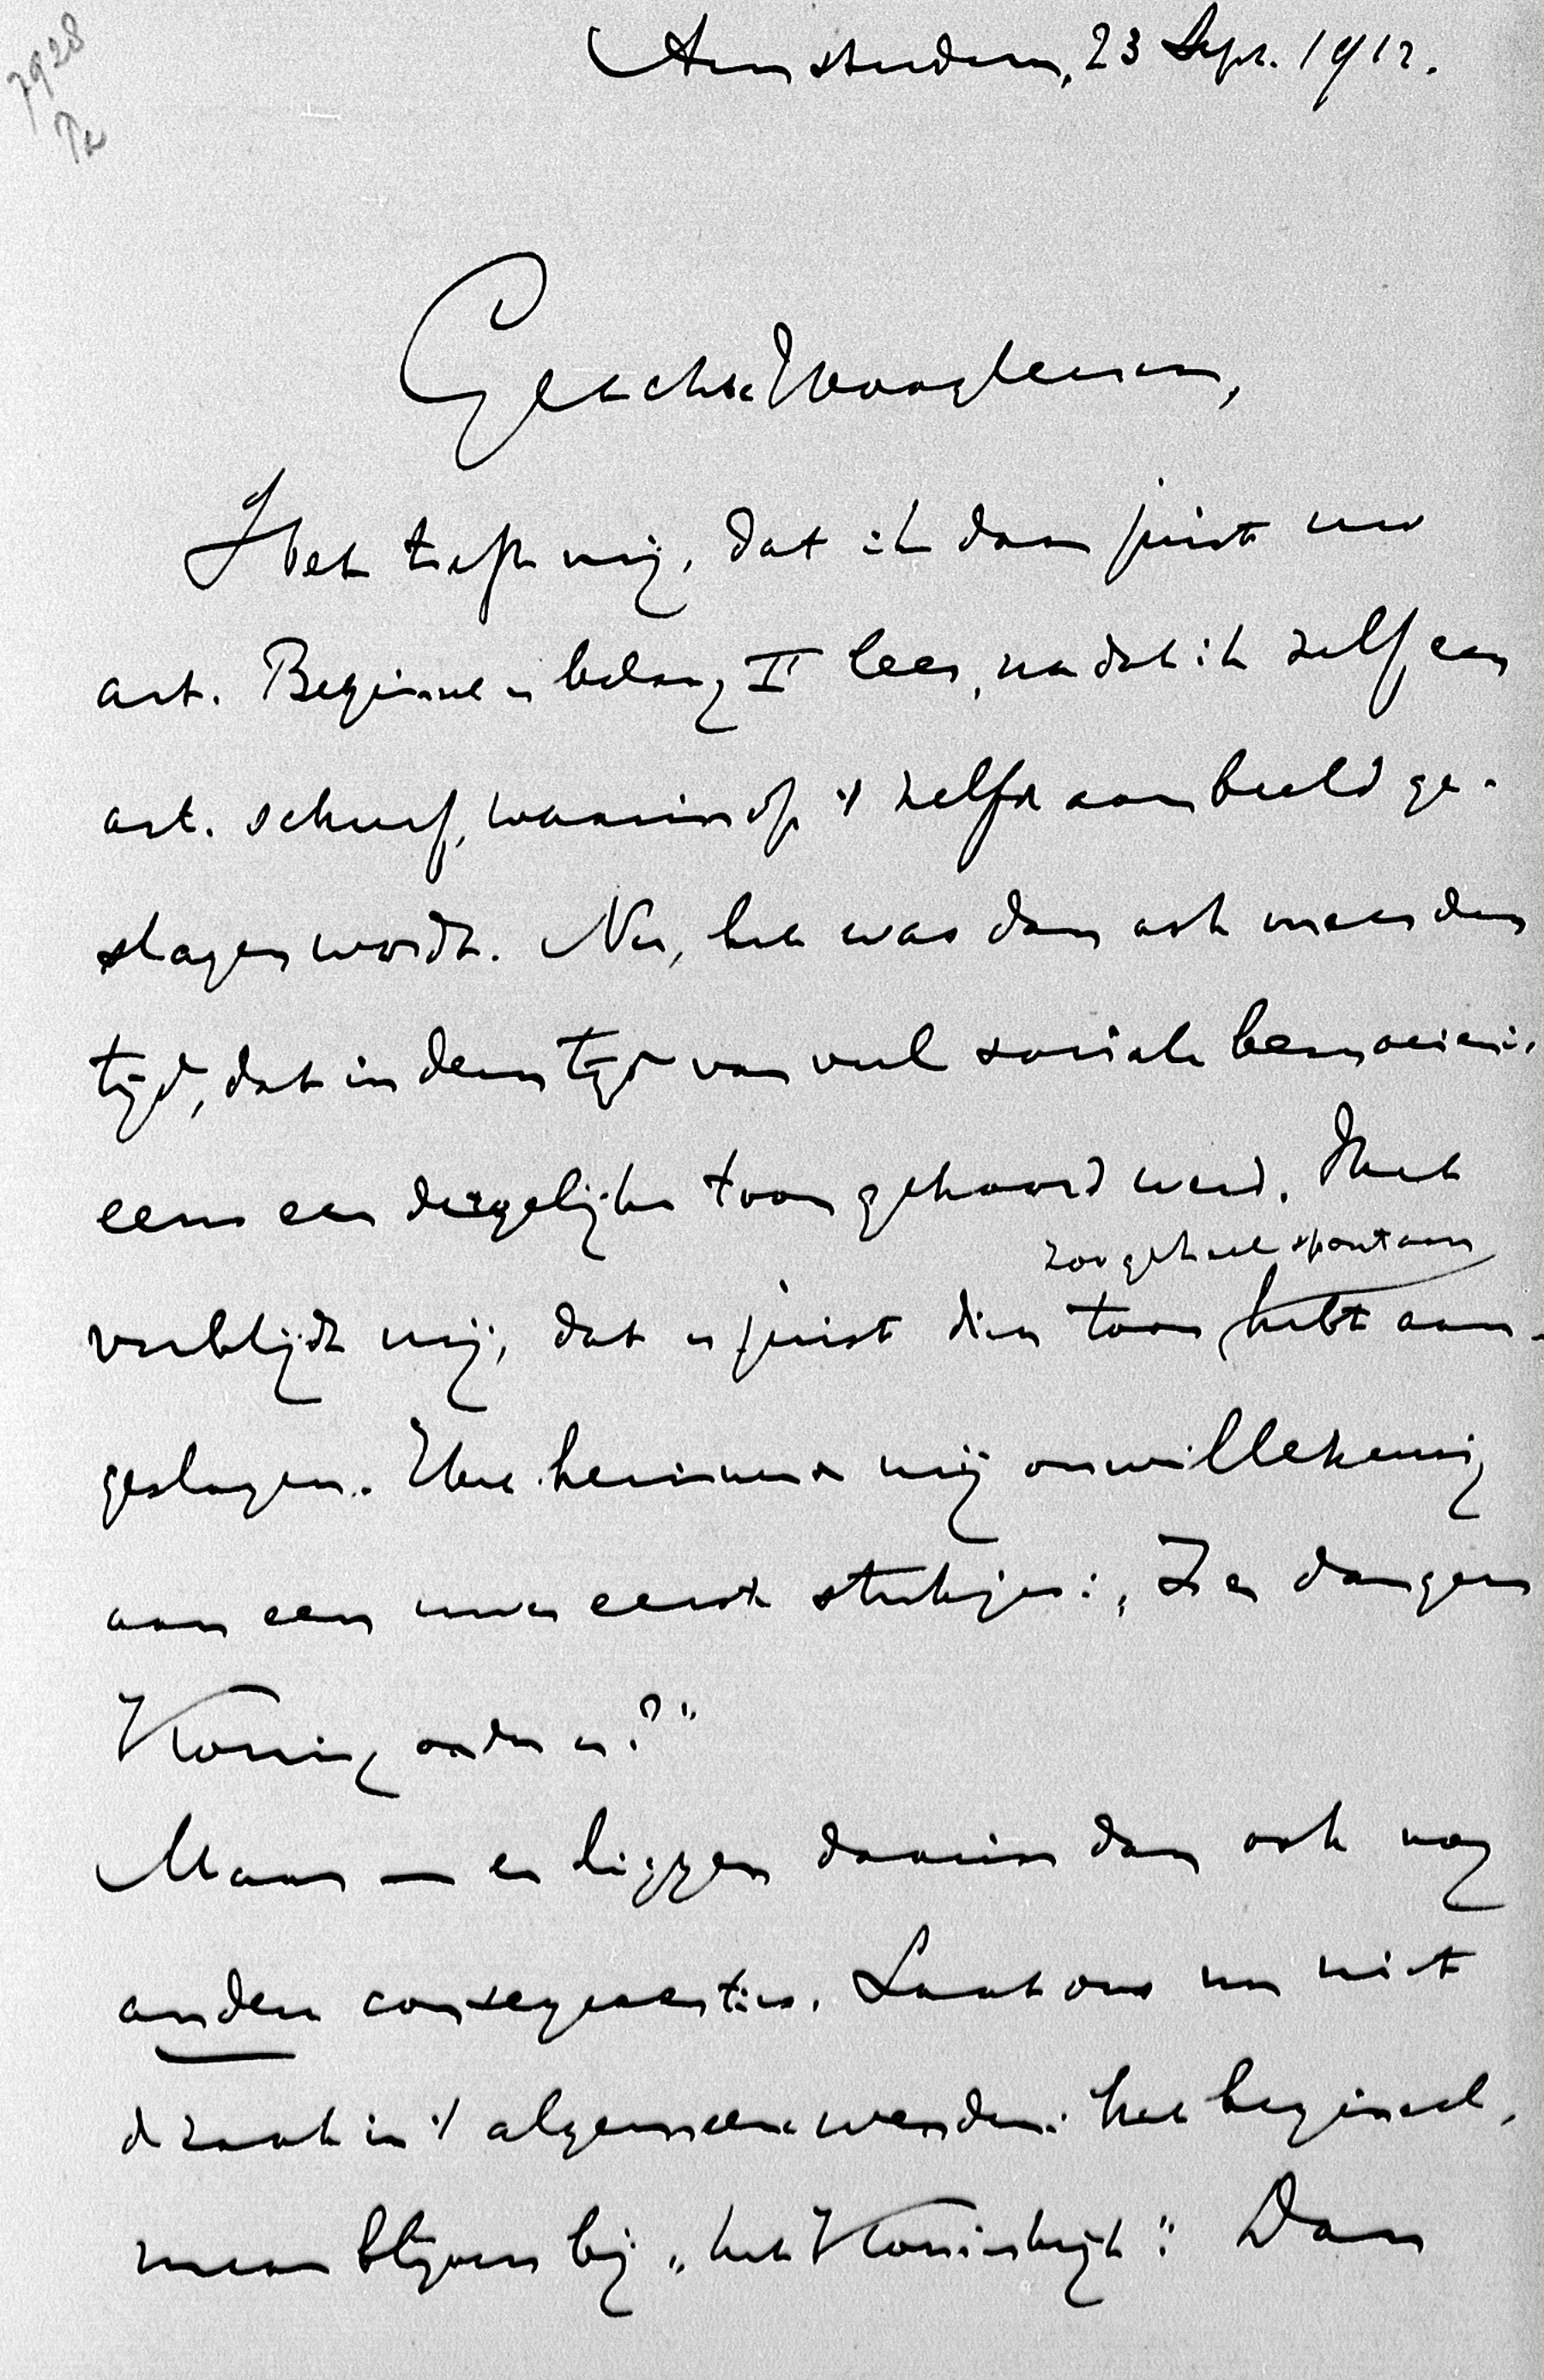 7928
Amsterdam, 23 Sept. 1912.
Geachte Hoogleeraar,
Het treft mij, dat ik daar juist uw
art. Beginsel en belang II lees, nadat ik zelf een
art. schreef, waarin op 't zelfde aanbeeld ge-
slagen wordt. Nu, het was dan ook meer dan
tijd, dat in dezen tijd van veel sociale bemoeiing
eens een dergelijke toon gehoord werd. Het
zoo geheel spontaan
verblijdt mij, dat u juist dien toon hebt aan-
geslagen. Het herinnerde mij onwillekeurig
aan een uwer eerste stukjes: „Is er dan geen
Koning onder u?"
Maar — er liggen daarin dan ook nog
andere consequenties. Laat ons nu niet
de zaak in 't algemeene wenden: het beginsel,
maar blijven bij „het Koninkrijk". Dan